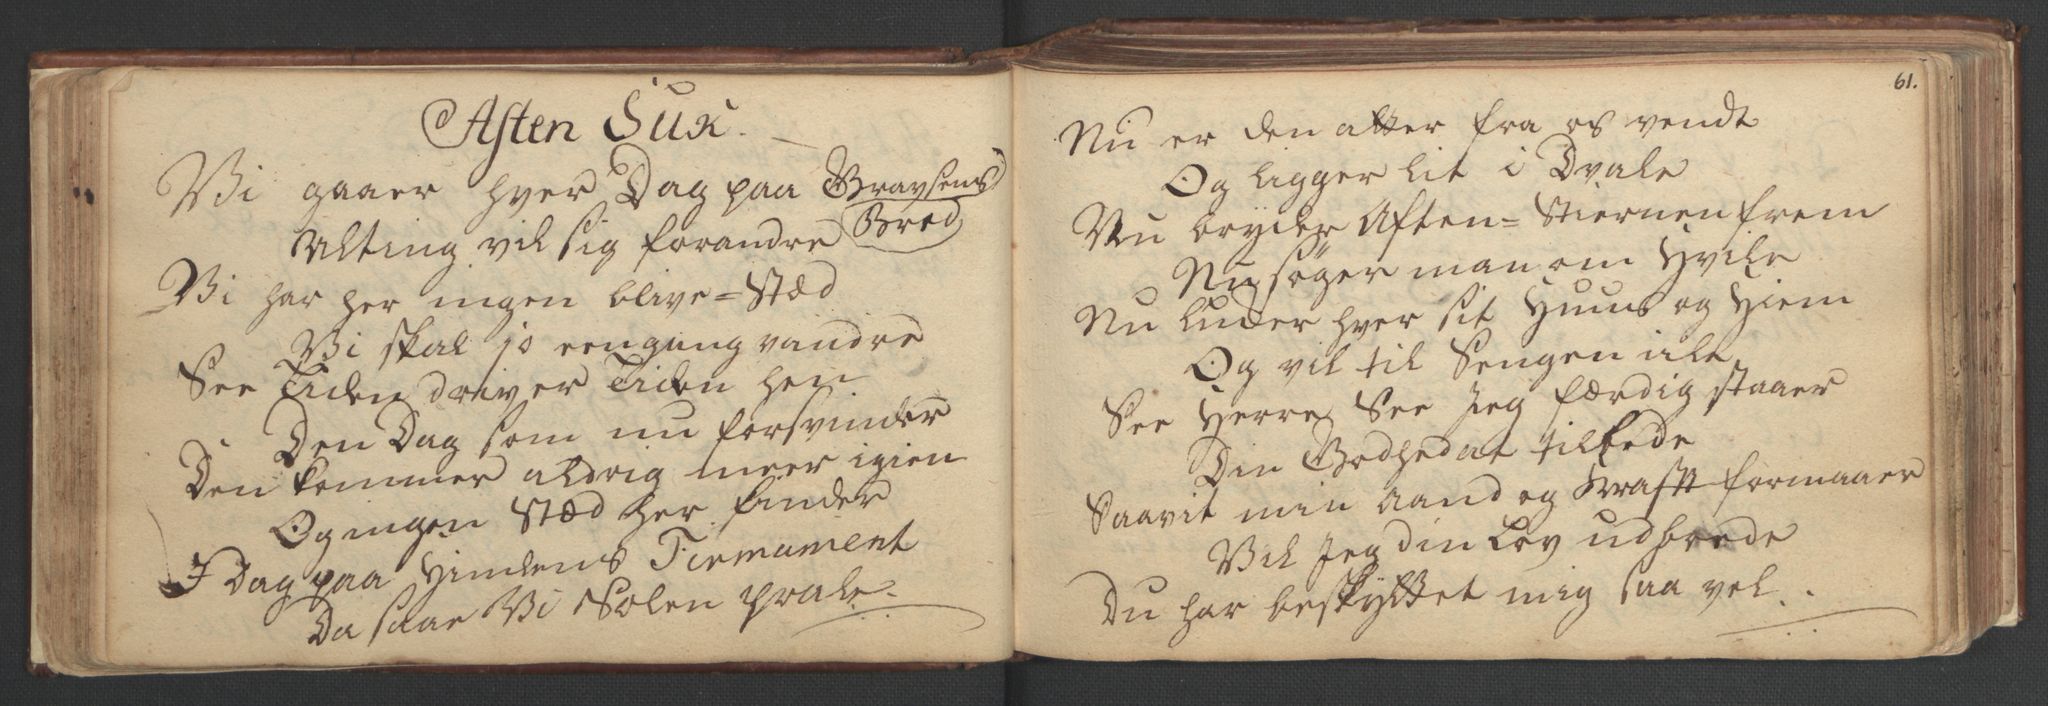 Aften Suk.
Vi gaaer hver Dag paa Gravsens
Bred
Alting vil sig forandre
Vi har her ingen blive=Stæd
Vi skal jo eengang vandre
See Tiden driver Tiden hen
Den Dag som nu forsvinder
Den kommer aldrig meer igien
Og ingen Stæd her finder
I Dag paa Himlens Firmament
Da saae Vi Solen prale
61.
Nu er den atter fra os vendt
Og ligger lit i Dvale
Nu bryder Aften=Stiernen frem
Nu søger man om Hvile
Nu luder hver sit Huus og Hiem
Og vil til Sengen iile
See Herre See Jeg færdig staaer
Din Godhed at tilbede
Saavit min Aand og Krafft formaaer
Vil Jeg din Lov udbrede
Du har beskyttet mig saa vel